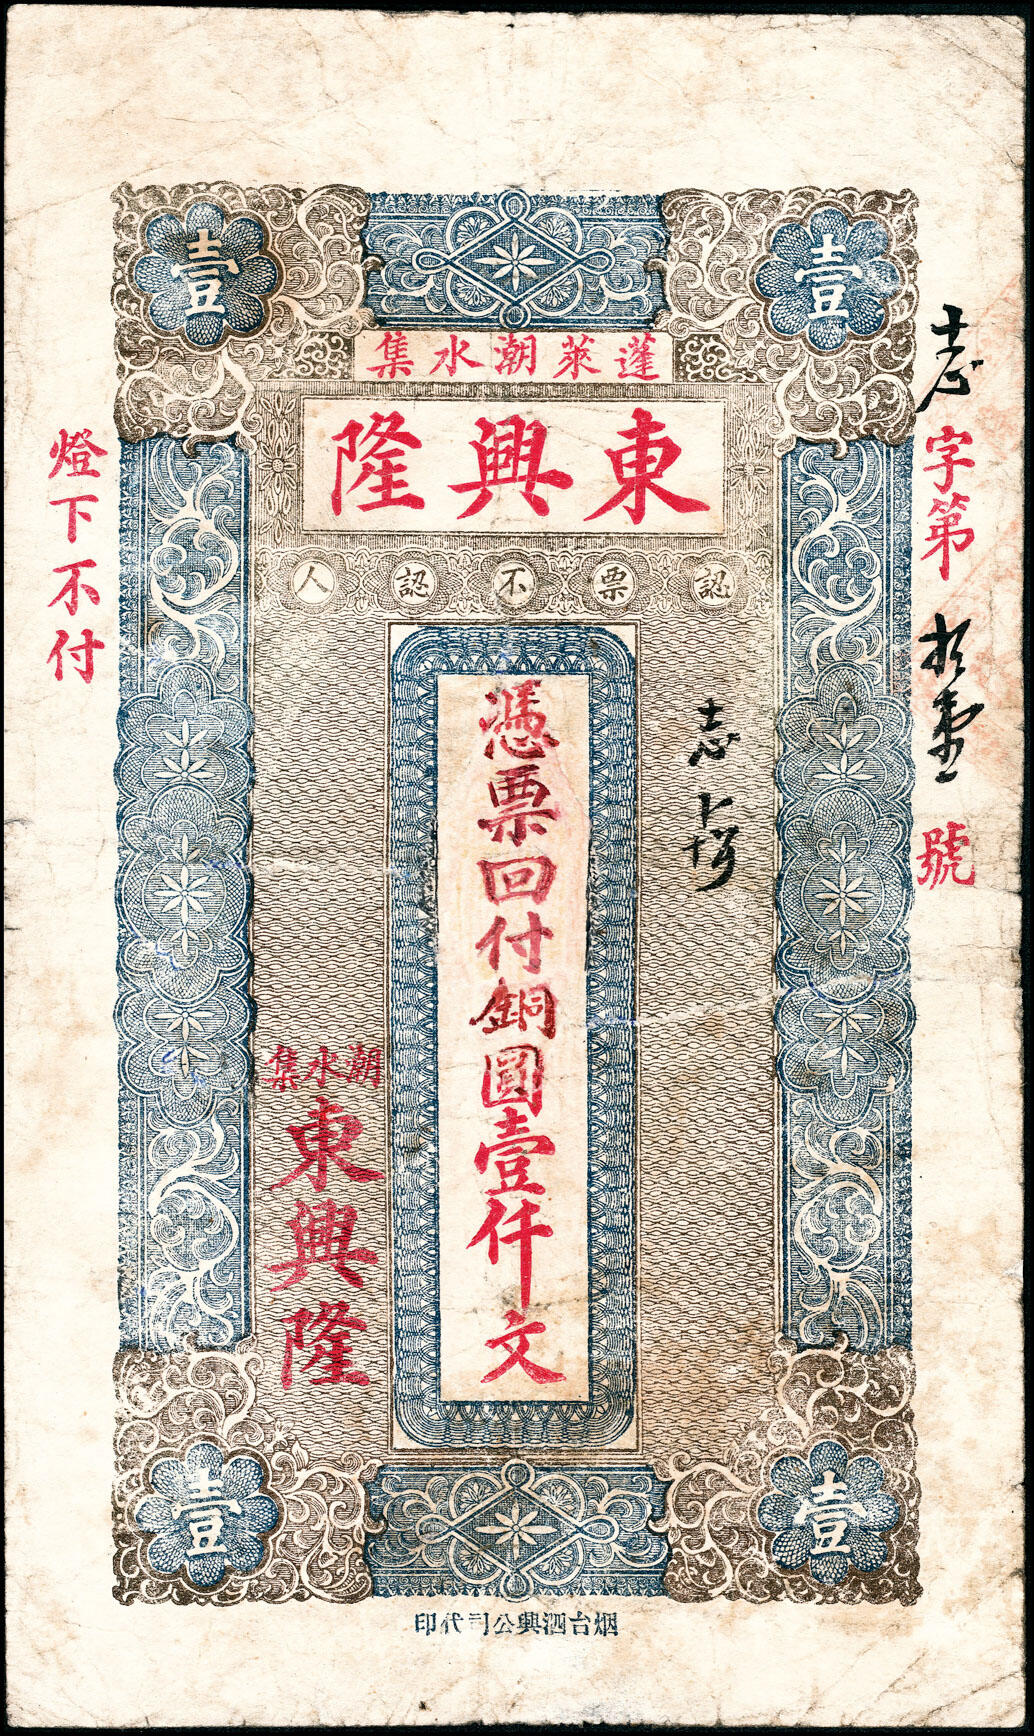 壹 壹
蓬萊潮水集
東興隆
認票不認人
志字第拾壹號
憑票回付銅圓壹仟文
志
潮水集
東興隆
燈下不付
壹 壹
烟台泗興公司代印